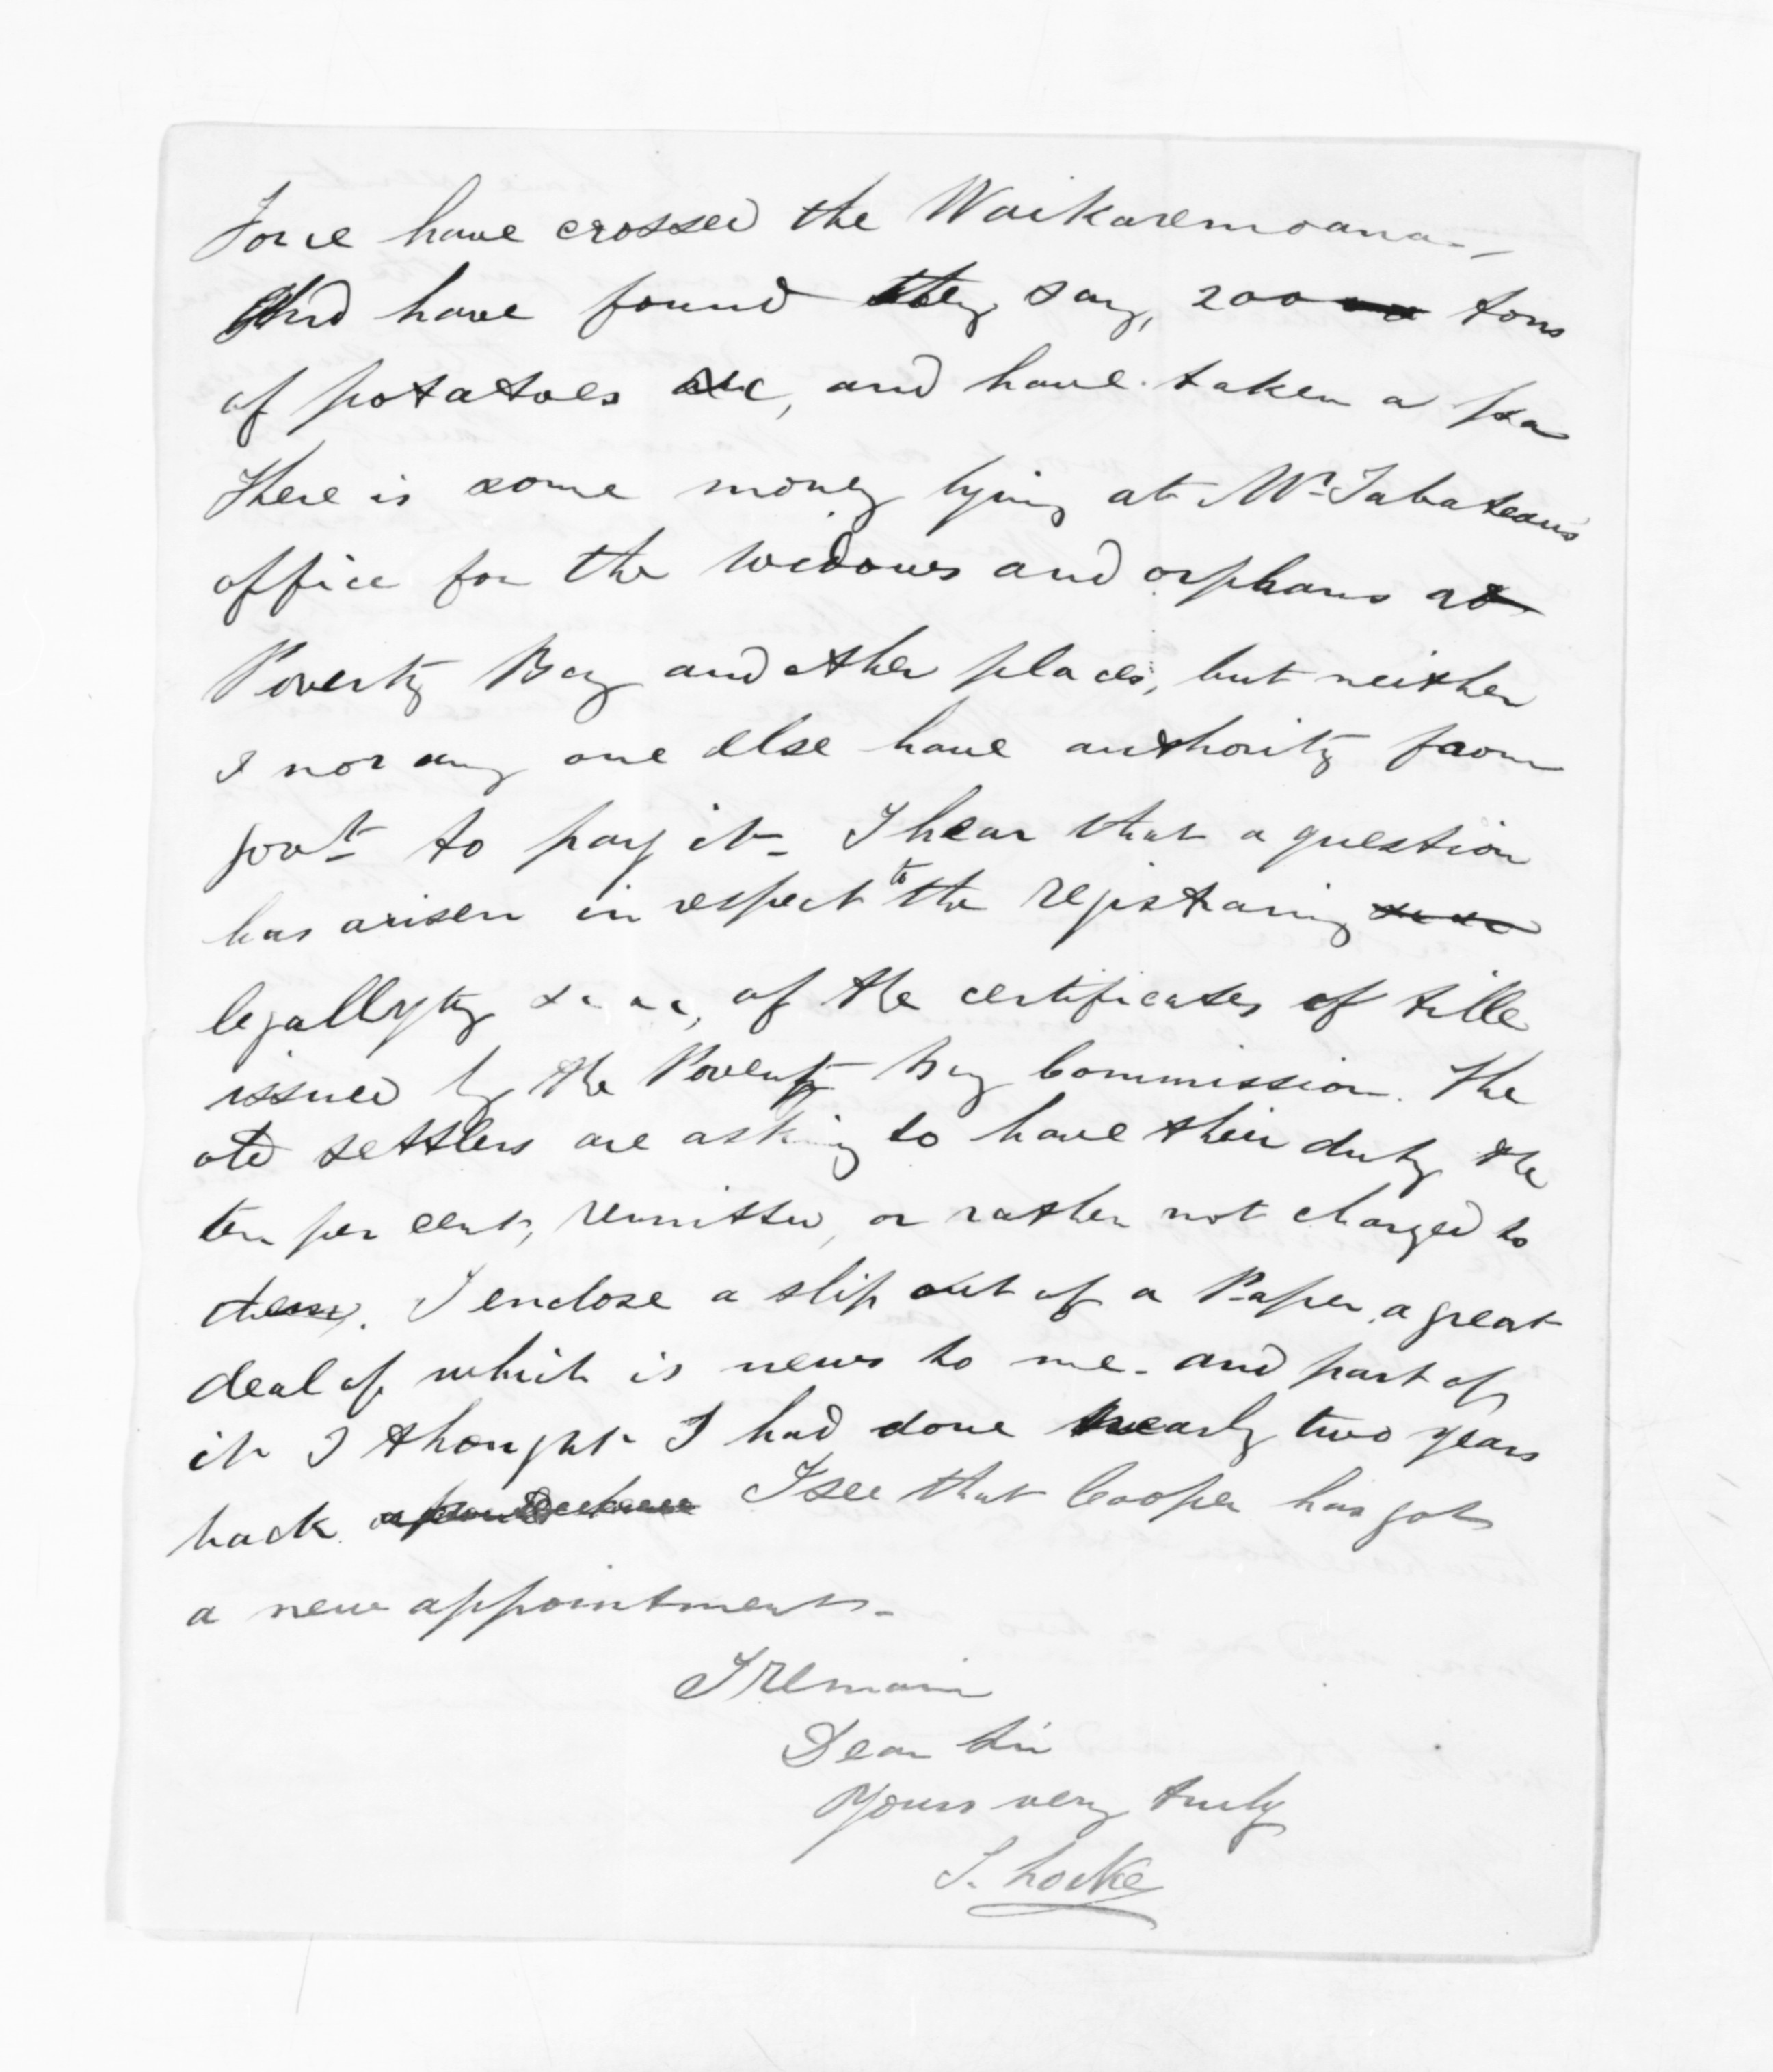 Force have crossed the Waikaremoana -
And have found they say, 200 tons
of potatoes &c, and have taken a pa
There is some money lying at Mr Tabateau's
office for the widows and orphans at
Poverty Bay and other places, but neither
I nor any one else have authority from
govt to pay it - I hear that a question
has arisen in respect to the registraring
legallyty &c &c, of the certificates of title
issued by the Poverty Bay Commission. The
old settlers are asking to have their duty the
ten per cent, remitted, or rather not charged to
them. I enclose a slip out of a Paper, a great
deal of which is news to me - and part of
it I thought I had done nearly two years
back. I see that Cooper has got
a new appointment -
I remain
Dear Sir
Yours very truly
S. Locke